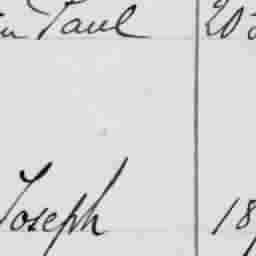 Paul 20
Joseph 18